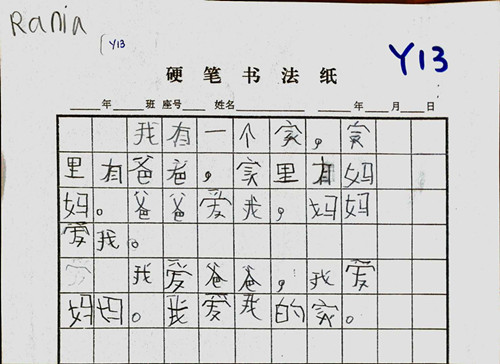 Rania
Y13
Y13
硬笔书法纸
年 班 座号 姓名 年 月 日
我有一个家,家
里有爸爸,家里有妈
妈。爸爸爱我,妈妈
爱我。
我爱爸爸,我爱
妈妈。我爱我的家。